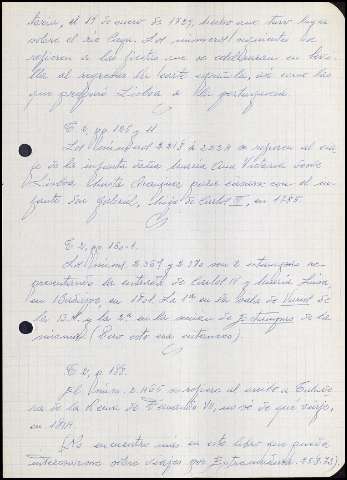 el 19 de enero de 1729, hecho que tuvo lugar
sobre el río Caya. Los números siguientes se
refieren a las fiestas que se celebraron en Sevi-
lla al regresar la corte española, así como las
que preparó Lisboa a la portuguesa.
T. 2, pp. 125 y ss.
Los números 2218 a 2224 se refieren al via-
je de la infanta doña María Ana Victoria desde
Lisboa hasta Aranjuez para casarse con el in-
fante don Gabriel, hijo de Carlos III, en 1785.
T. 2, pp. 150-1.
Los núms. 2369 y 2370 son 2 estampas re-
presentando la entrada de Carlos IV y María Luisa
en Badajoz, en 1801. La 1ª en la Sala de Varios de
la B.N. y la 2ª en la sección de Estampas de la
misma. (Pero esto era entonces).
T. 2, p. 189.
El núm. 2465 se refiere al
de la de Fernando VII, no sé de qué viaje,
en 1814.
(No encuentro más en este libro que pueda
interesarnos sobre viajes por Extremadura. 25.9.73).